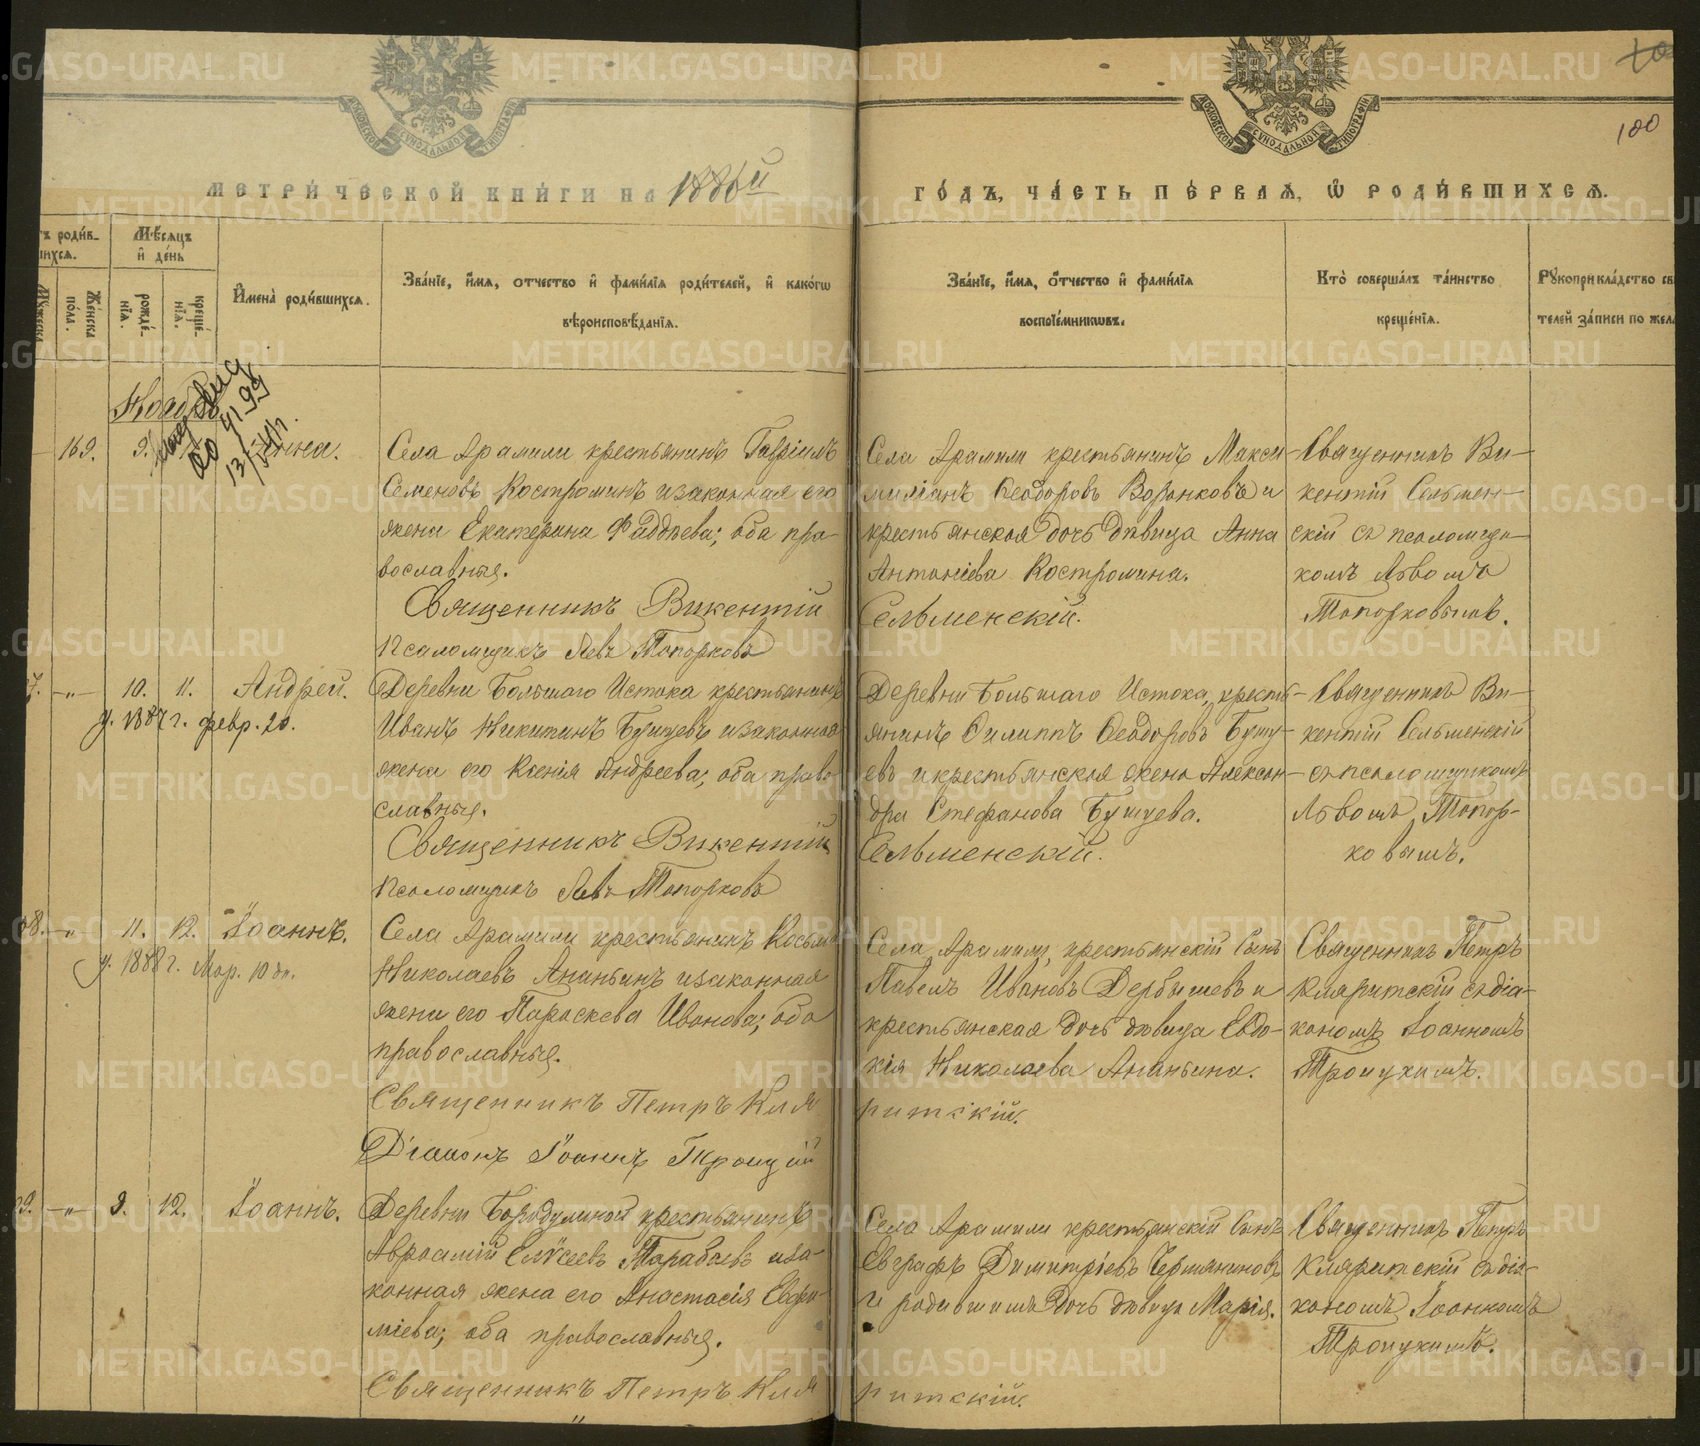 МЕТРИ́ЧЕСКОЙ КНИ́ГИ НА 1886й
ГО́ДЪ, ЧА́СТЬ ПЕ́РВАЯ, Ѡ РОДИ́ВШИХСЯ.
100
МОСКОВСКОЙ СѴНОДАЛЬНОЙ ТИПОГРАФІИ
МОСКОВСКОЙ СѴНОДАЛЬНОЙ ТИПОГРАФІИ
ъ роди́в-
шихся.
Же́нска по́ла.
Мѣсяцъ и҆ де́нь
рожде́нія.
креще́нія.
И҆мена̀ роди́вшихся.
Зва́ніе, и҆́мя, ѻтчество и҆ фами́лія роди́телей, и҆ како́гѡ
вѣроисповѣ́данія.
Зва́ніе, и҆́мя, ѻ҆́тчество и҆ фами́лія
воспріе́мниковъ.
Кто̀ соверша́лъ та́инство
креще́нія.
Рꙋкоприкла́дство св
телей за́писи по жела
Ноябрь
169. 9. Анна.
13/
Села Арамили крестьянинъ Гавріилъ
Семеновъ Костроминъ и законная его
жена Екатерина Фаддѣева; оба пра-
вославные.
Священникъ Викентій
Псаломщикъ Левъ Топорковъ
Села Арамили крестьянинъ Макси-
миліанъ Ѳеодоровъ Воронковъ и
крестьянская дочь дѣвица Анна
Антоніева Костромина.
Сельменскій.
Священникъ Ви-
кентій Сельмен-
скій съ псаломщи-
комъ Львомъ
Топорковымъ.
7. —"— 10. 11. Андрей.
у. 1887 г. февр. 20.
Деревни Большаго Истока крестьянинъ
Иванъ Никитинъ Бушуевъ и законная
жена его Ксенія Андреева; оба право-
славные.
Священникъ Викентій
Псаломщикъ Левъ Топорковъ
Деревни Большаго Истока, кресть-
янинъ Филиппъ Ѳеодоровъ Бушу-
евъ и крестьянская жена Алексан-
дра Стефанова Бушуева.
Сельменскій.
Священникъ Ви-
кентій Сельменскій
съ псаломщикомъ
Львомъ Топор-
ковымъ.
8. —"— 11. 12. Іоаннъ.
у. 1888 г. Мар. 10 дн.
Села Арамили крестьянинъ Косьма
Николаевъ Ананьинъ и законная
жена его Параскева Иванова; оба
православные.
Священникъ Петръ Кля
Діаконъ Іоаннъ Троицкій
Села Арамили, крестьянскій сынъ
Павелъ Ивановъ Дербышевъ и
крестьянская дочь дѣвица Евдо-
кія Николаева Ананьина.
ритскій.
Священникъ Петръ
Кляритскій съ діа-
кономъ Іоанномъ
Троицкимъ.
9. —"— 9. 12. Іоаннъ.
Деревни Бородулиной крестьянинъ
Авраамій Елисеевъ Тарабаевъ и за-
конная жена его Анастасія Евфи-
міева; оба православные.
Священникъ Петръ Кля
Села Арамили крестьянскій сынъ
Евграфъ Димитріевъ Чермяниновъ
и родившимъ дочь дѣвица Марія.
ритскій.
Священникъ Петръ
Кляритскій съ діа-
кономъ Іоанномъ
Троицкимъ.
METRIKI.GASO-URAL.RU